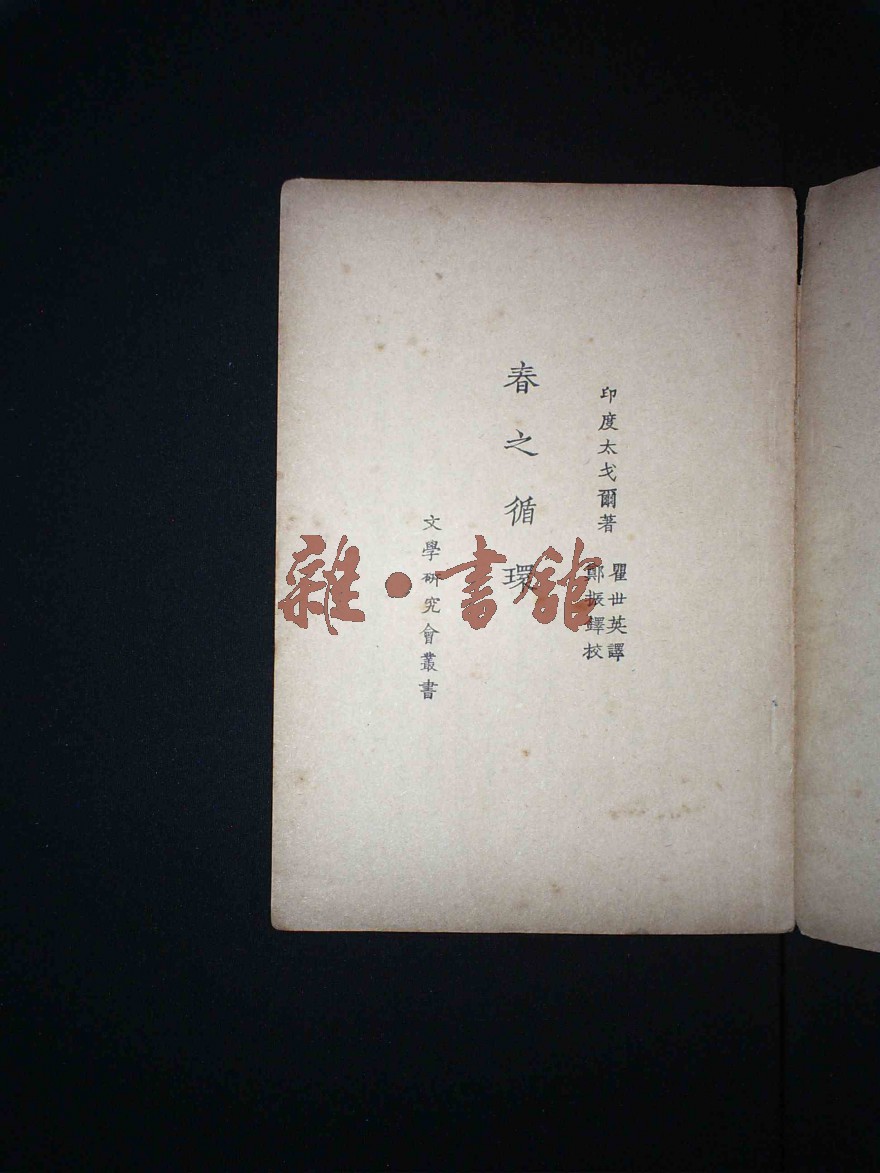 印度太戈爾著
瞿世英譯
鄭振鐸校
春之循環
文學研究會叢書
雜·書館